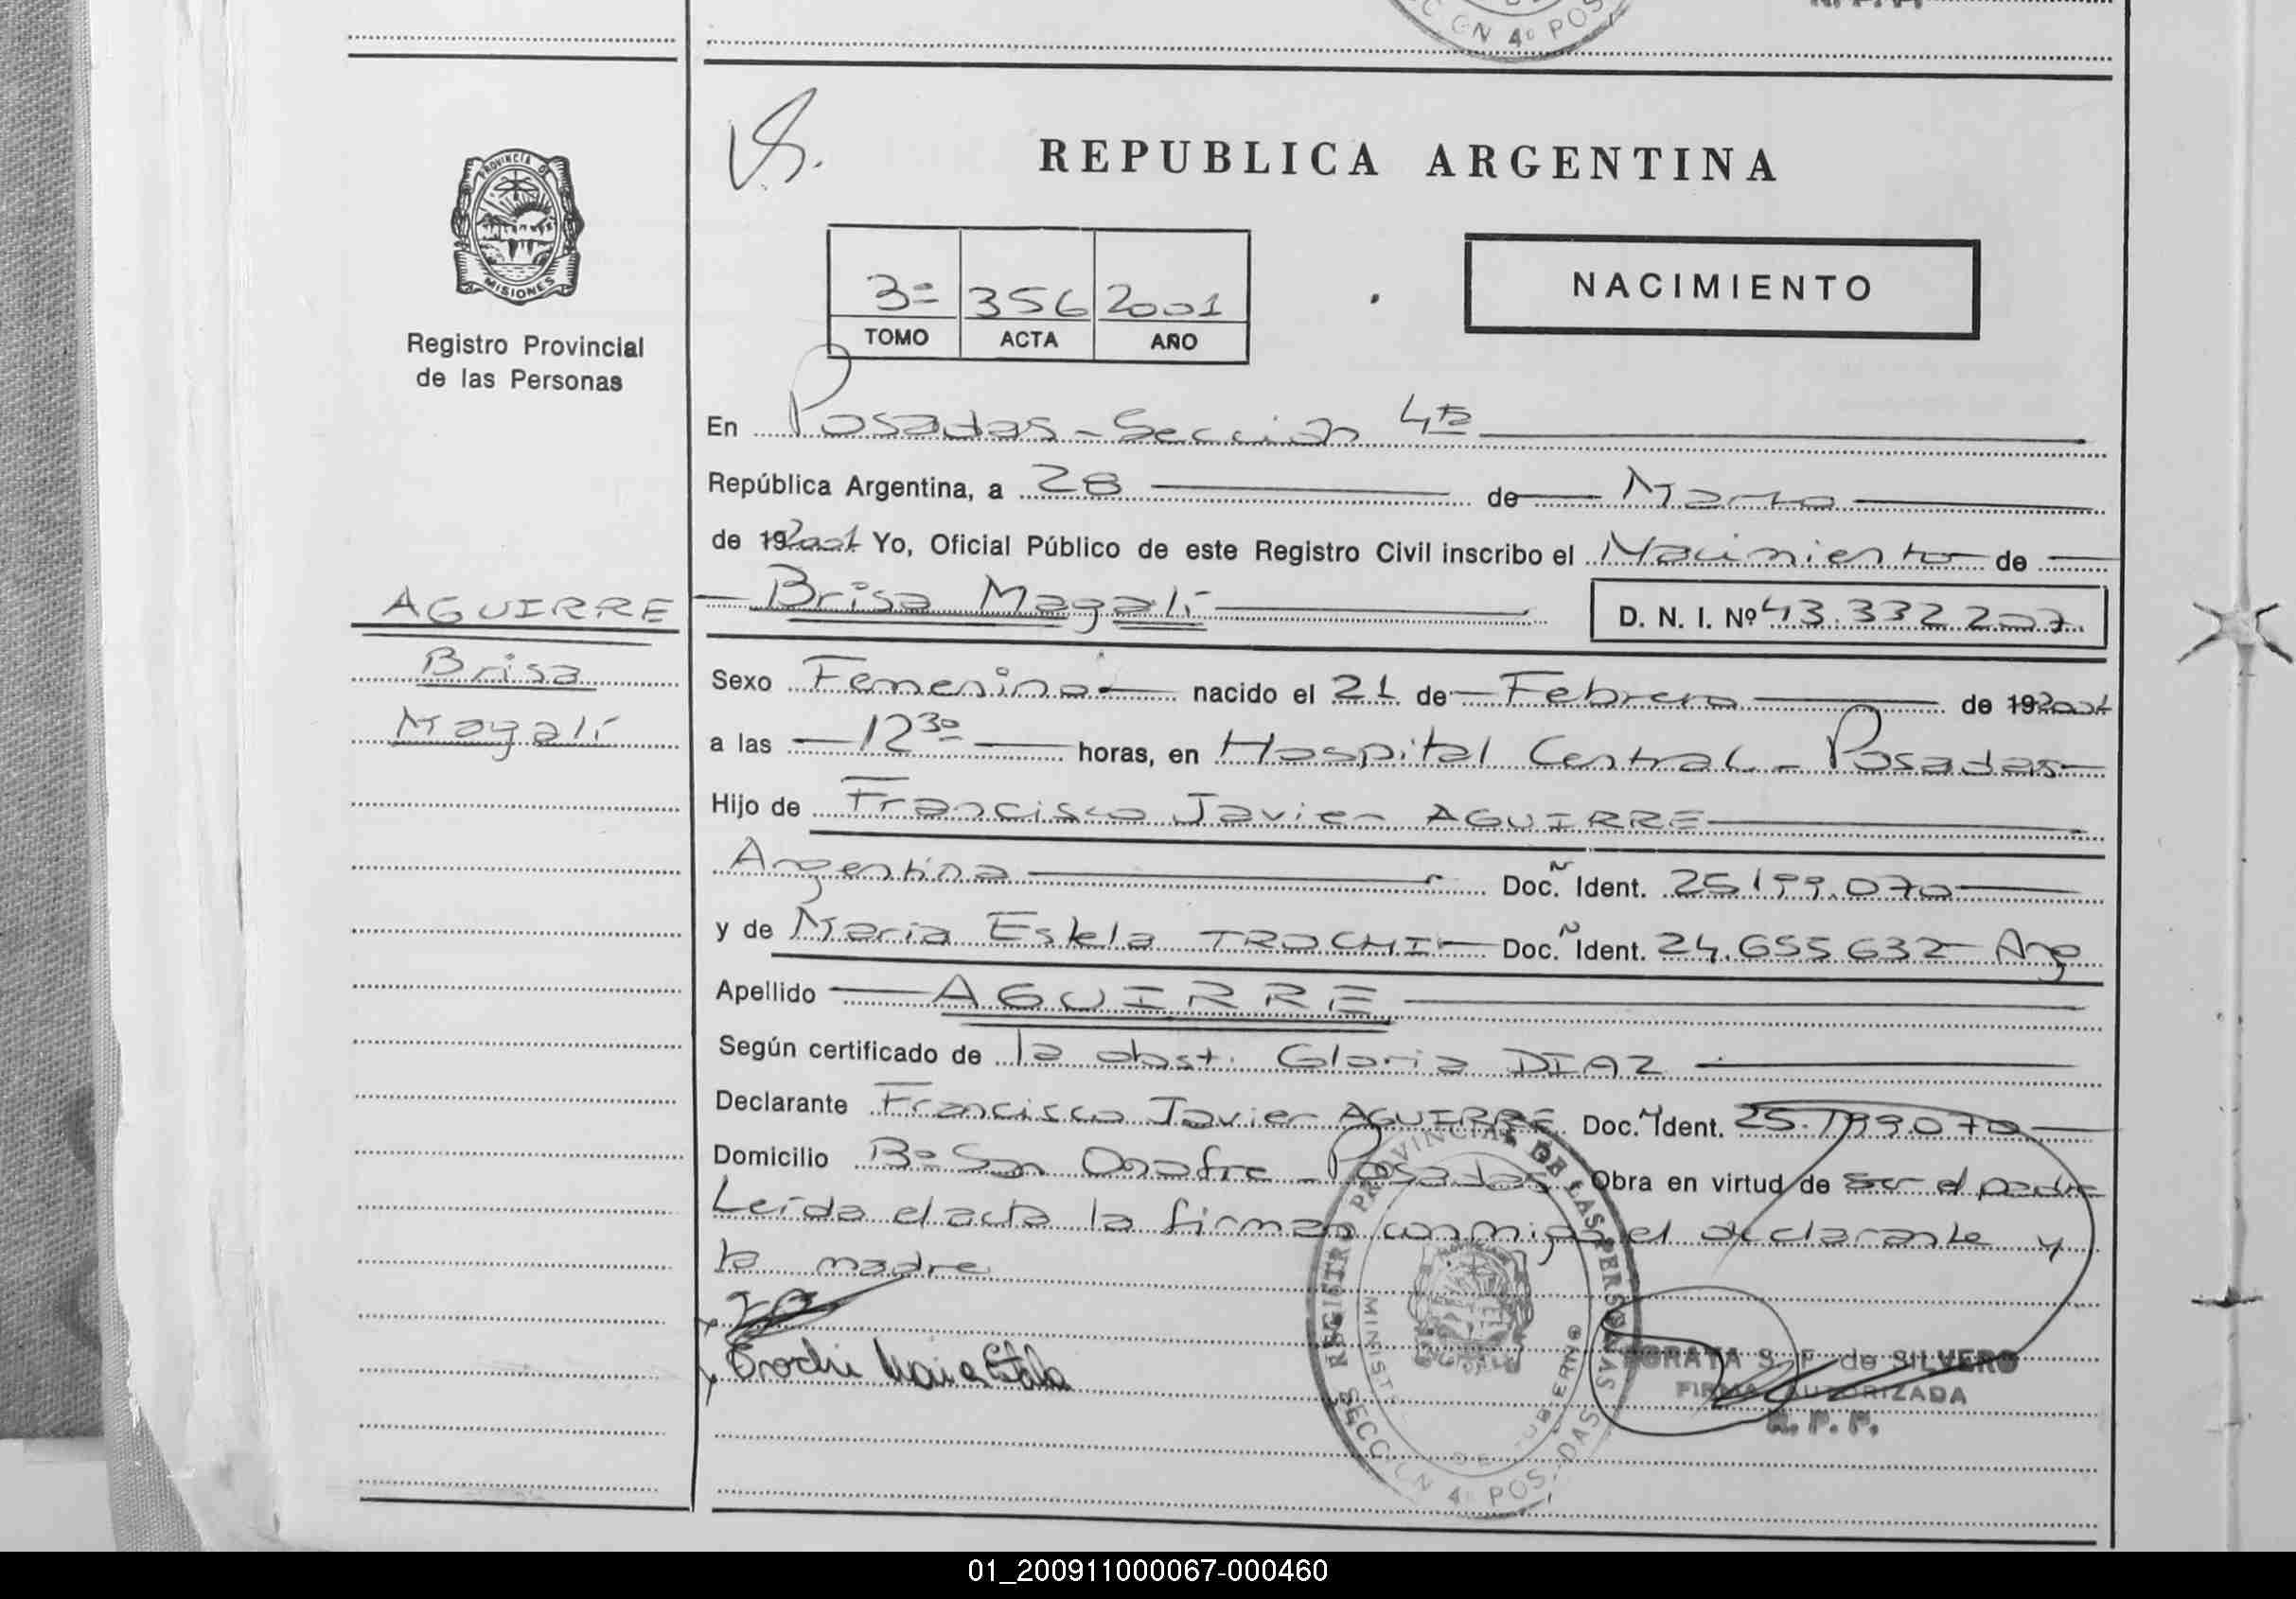 CCION 4º POS
R. P. P.
V.S.
REPUBLICA ARGENTINA
PROVINCIA DE
MISIONES
Registro Provincial
de las Personas
3º 356 2001
TOMO ACTA AÑO
NACIMIENTO
En Posadas - Sección 4ta
República Argentina, a 28 de Marzo
de 192001 Yo, Oficial Público de este Registro Civil inscribo el Nacimiento de
AGUIRRE
Brisa
Magalí
Brisa Magalí D. N. I. Nº 43.332.207
Sexo Femenino nacido el 21 de Febrero de 192001
a las 12 30 horas, en Hospital Central - Posadas
Hijo de Francisco Javier AGUIRRE
Argentina Doc. Ident. 25.199.070
y de Maria Estela TROCHI Doc. Ident. 24.655.632 Arg
Apellido AGUIRRE
Según certificado de la obst. Gloria DIAZ
Declarante Francisco Javier AGUIRRE Doc. Ident. 25.199.070
Domicilio Bº San Onofre - Posadas Obra en virtud de ser el padre
Leída el acta la firman conmigo el declarante y
la madre
Trochi Maria Estela
REGISTRO PROVINCIAL DE LAS PERSONAS
MINISTERIO DE GOBIERNO
SECCION 4º POSADAS
SORAYA S. F. de SILVERO
FIRMA AUTORIZADA
R. P. P.
01_200911000067-000460